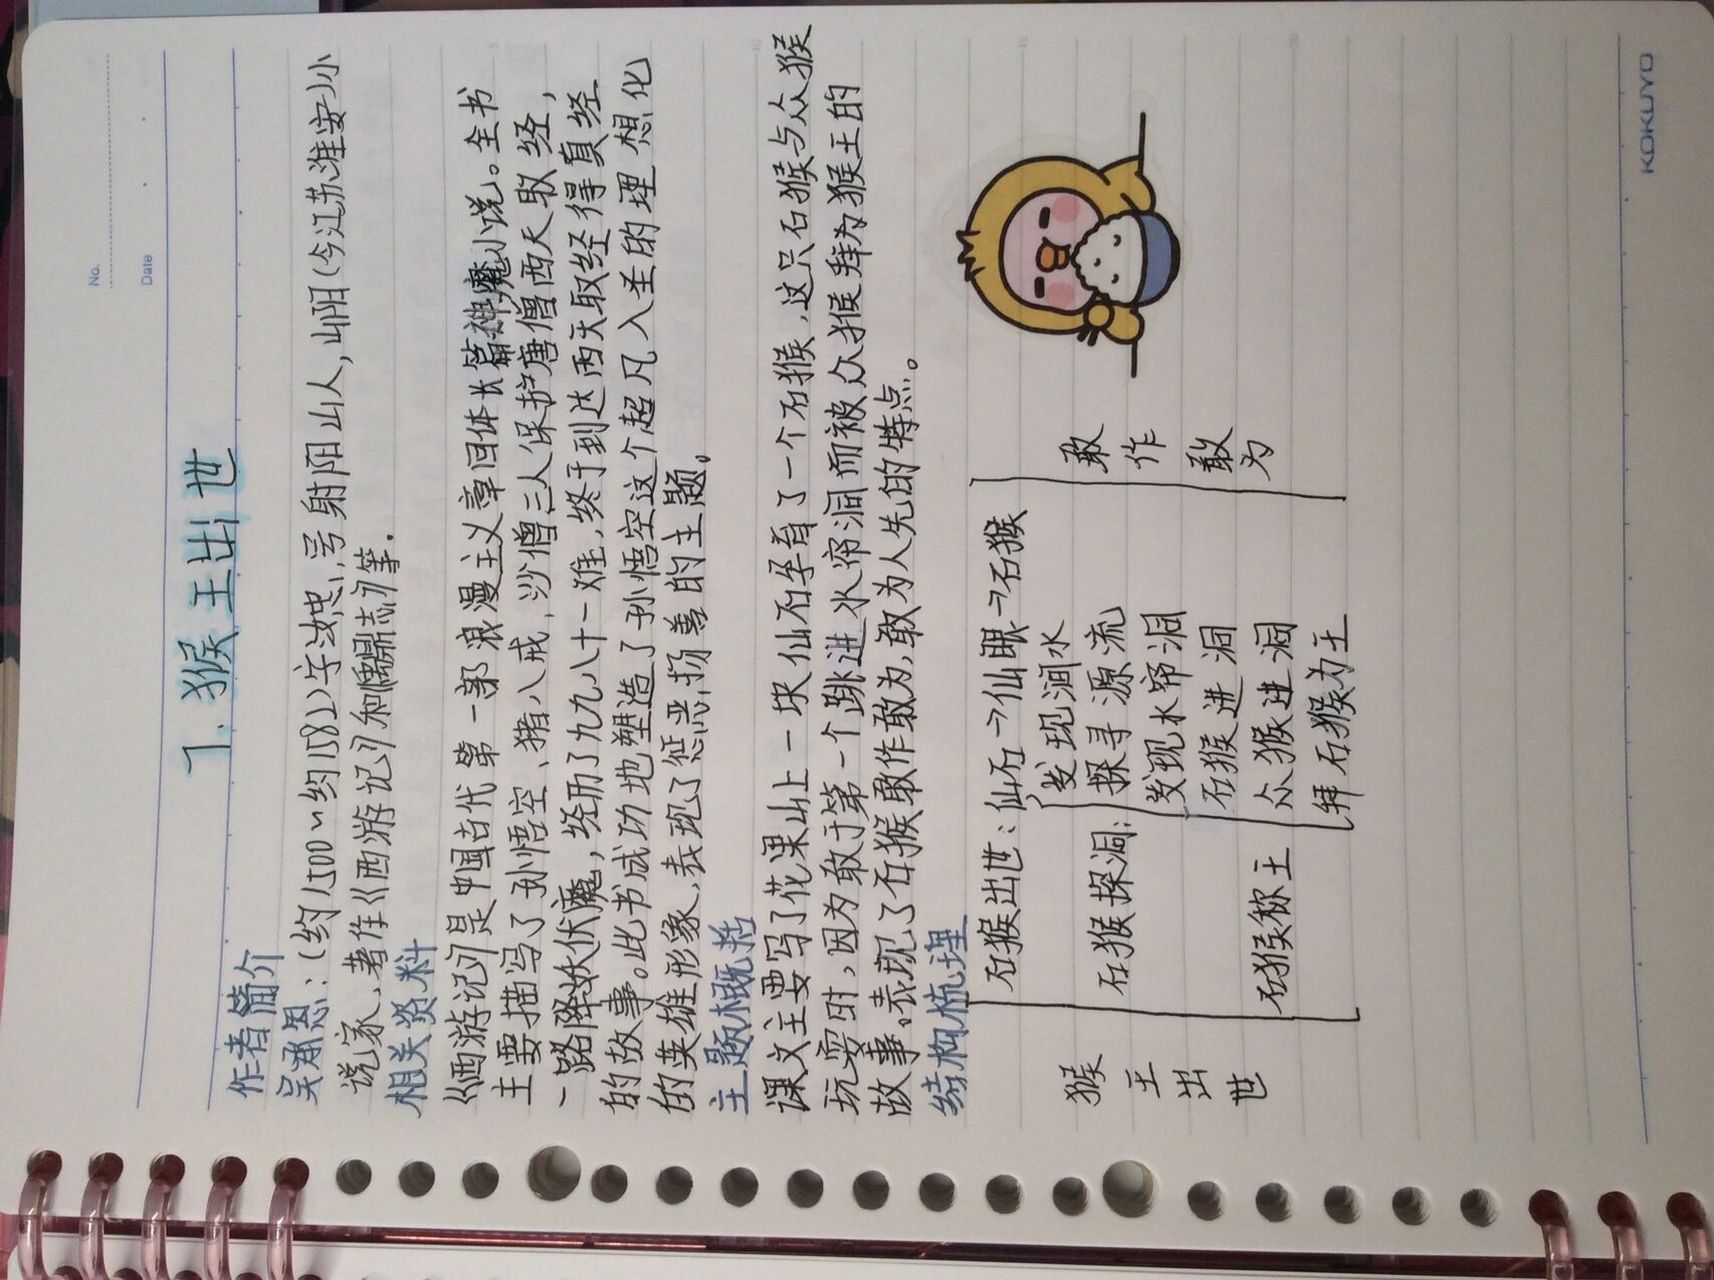 No.
Date
7.猴王出世
作者简介
吴承恩:(约1500~约1582)字汝忠,号射阳山人,山阳(今江苏淮安小
说家、著作《西游记》和《禹鼎志》等.
相关资料
《西游记》是中国古代第一部浪漫主义章回体长篇神魔小说。全书
主要描写了孙悟空、猪八戒,沙僧三人保护唐僧西天取经,
一路降妖伏魔,经历了九九八十一难,终于到达西天取经得真经
的故事。此书成功地塑造了孙悟空这个超凡入圣的理想化
的英雄形象,表现了惩恶扬善的主题。
主题概括
课文主要写了花果山上一块仙石孕育了一个石猴,这只石猴与众猴
玩耍时,因为敢于第一个跳进水帘洞而被众猴拜为猴王的
故事。表现了石猴敢作敢为,敢为人先的特点。
结构梳理
猴王出世
石猴出世:仙石→仙眼→石猴
石猴探洞:
发现涧水
探寻源流
石猴称王
发现水帘洞
石猴进洞
众猴进洞
拜石猴为王
敢作敢为
KOKUYO